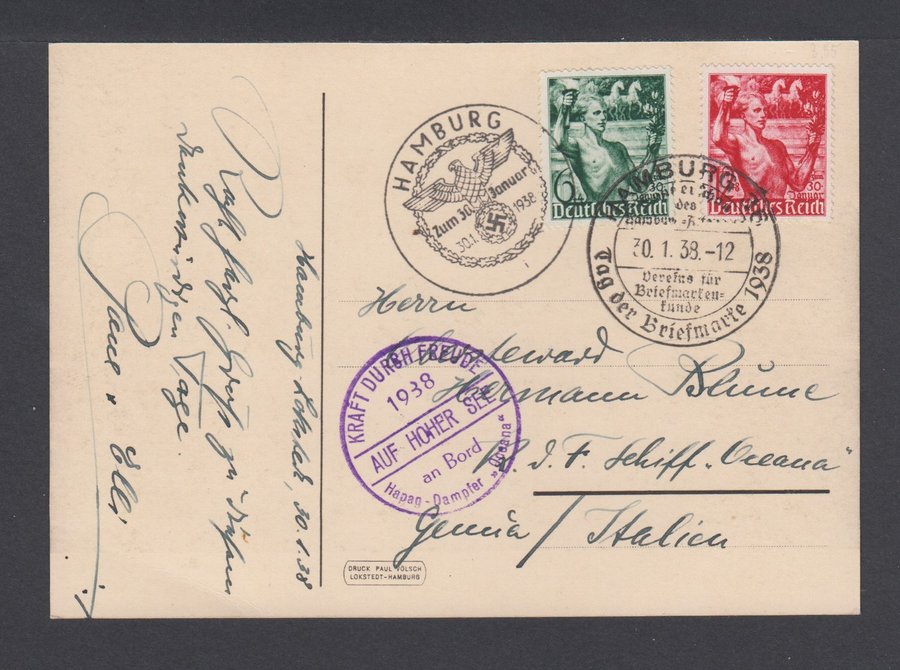 HAMBURG
Zum 30. Januar
30.1. 1938
6
30.
Januar
Deutsches Reich
30.
Januar
Deutsches Reich
HAMBURG
des
30.1.38.-12
Vereins für
Briefmarken=
kunde
Tag der Briefmarke 1938
Herrn
Hermann Blume
K. d. F. Schiff „Oceana“
Genua / Italien
KRAFT DURCH FREUDE
1938
AUF HOHER SEE
an Bord
Hapag-Dampfer „Oceana“
DRUCK PAUL VÖLSCH
LOKSTEDT-HAMBURG
Hamburg Lokstedt, 30.1.38
Recht herzl. Grüße zu diesem
denkwürdigen Tage.
Elli